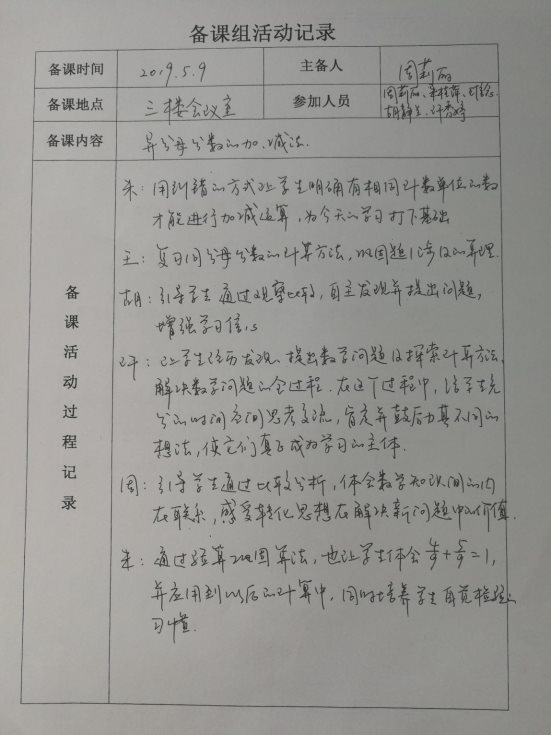 备课组活动记录
备课时间 2019.5.9 主备人 周莉丽
备课地点 三楼会议室 参加人员 周莉丽、朱桂萍、
胡静兰、许
备课内容 异分母分数的加、减法.
备课活动过程记录
朱：用纠错的方式让学生明确有相同计数单位的数
才能进行加减运算，为今天的学习打下基础
王：复习同分母分数的计算方法，巩固题1涉及的算理.
胡：引导学生通过观察比较，自主发现并提出问题，
增强学习信心
许：让学生经历发现、提出数学问题及探索计算方法、
解决数学问题的全过程.在这个过程中，给学生充
分的时间空间思考交流，肯定并鼓励其不同的
想法，使它们真正成为学习的主体.
周：引导学生通过比较分析，体会数学知识间的内
在联系，感受转化思想在解决新问题中的价值.
朱：通过验算巩固算法，也让学生体会4/9+5/9=1，
并应用到以后的计算中，同时培养学生自觉检验的
习惯.